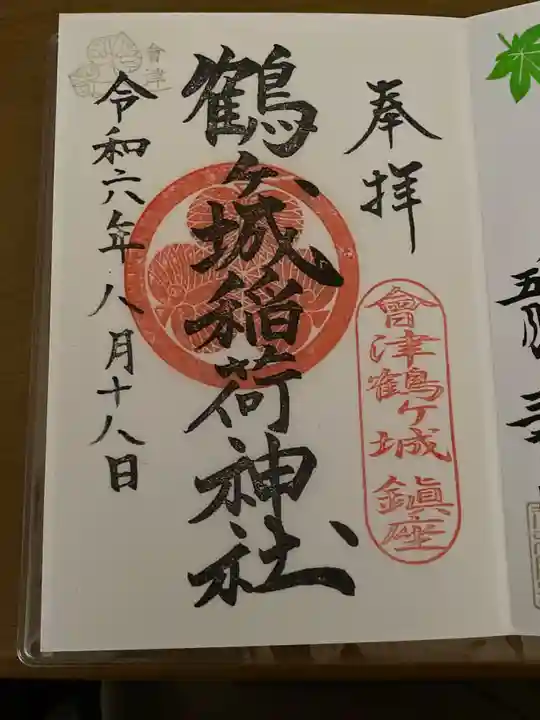 奉拝
會津鶴ヶ城鎮座
鶴ヶ城稲荷神社
會津
令和六年八月十八日